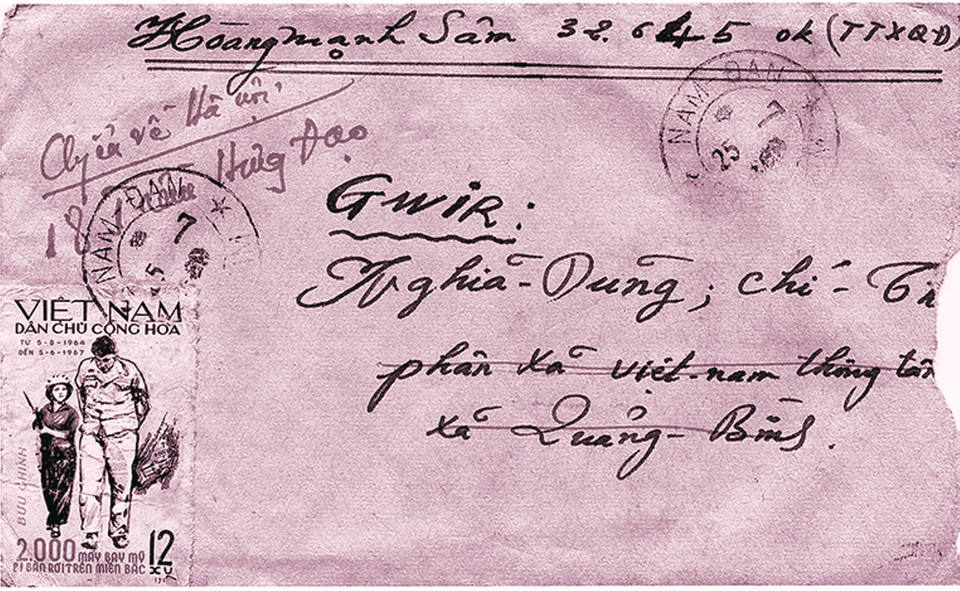 Hoàng mạnh Sâm 32.645 ok (TTXQĐ)
NAM ĐÀN
25 7
Chuyển về Hà Nội
18 Hưng Đạo
NAM ĐÀN
7
GWIR:
Nghiã - Dũng; chí - 
phân xã việt-nam thông tấn
xã Quảng - Bình.
VIỆT NAM
DÂN CHỦ CỘNG HÒA
TỪ 5-8-1964
ĐẾN 5-6-1967
BƯU CHÍNH
2.000 MÁY BAY MỸ
BỊ BẮN RƠI TRÊN MIỀN BẮC
12
XU